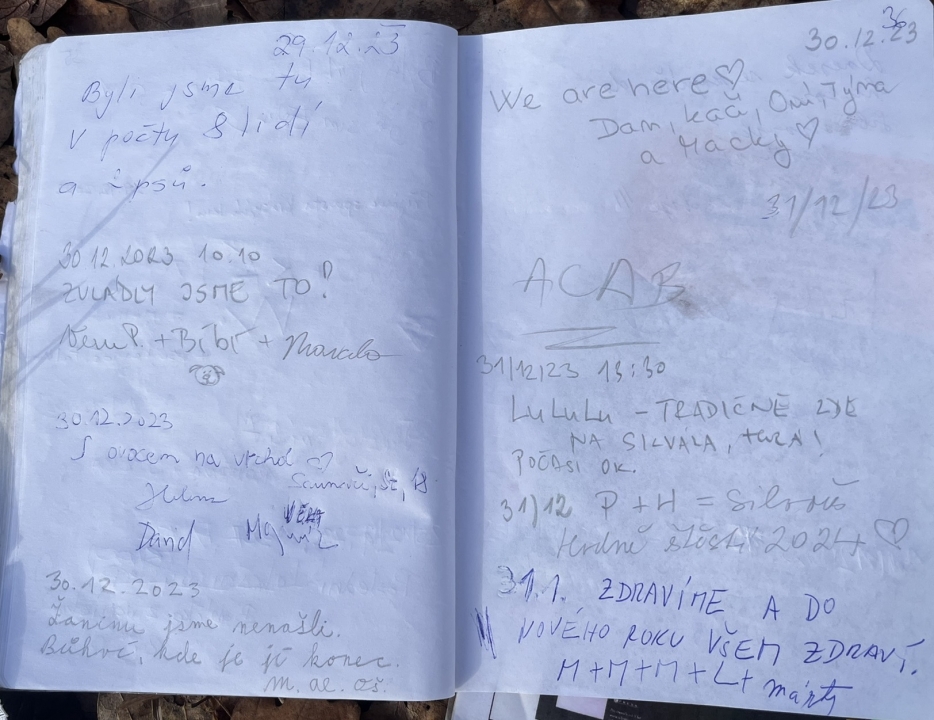 29.12.23
Byli jsme tu
v počty 8 lidí
a 2 psů.
30.12.2023 10.10
ZVLÁDLY JSME TO!
+ Bíbí +
30.12.2023
S ovocem na vrchol
David
30.12.2023
Žaninu jsme nenašli.
Bůhví, kde je jí konec.
M. ae. oš.
30.12.23
We are here ♡
Dam, kačí, Týma
a Macky ♡
31/12/23
ACAB
31/12/23 13:30
LuLuLu - TRADIČNĚ ZDE
NA SILVALA, HURÁ!
POČASÍ OK.
31/12 P + H = Silvouš
Hodně štěstí 2024 ♡
31.1. ZDRAVÍME A DO
NOVÉHO ROKU VŠEM ZDRAVÍ.
M+M+M+L+